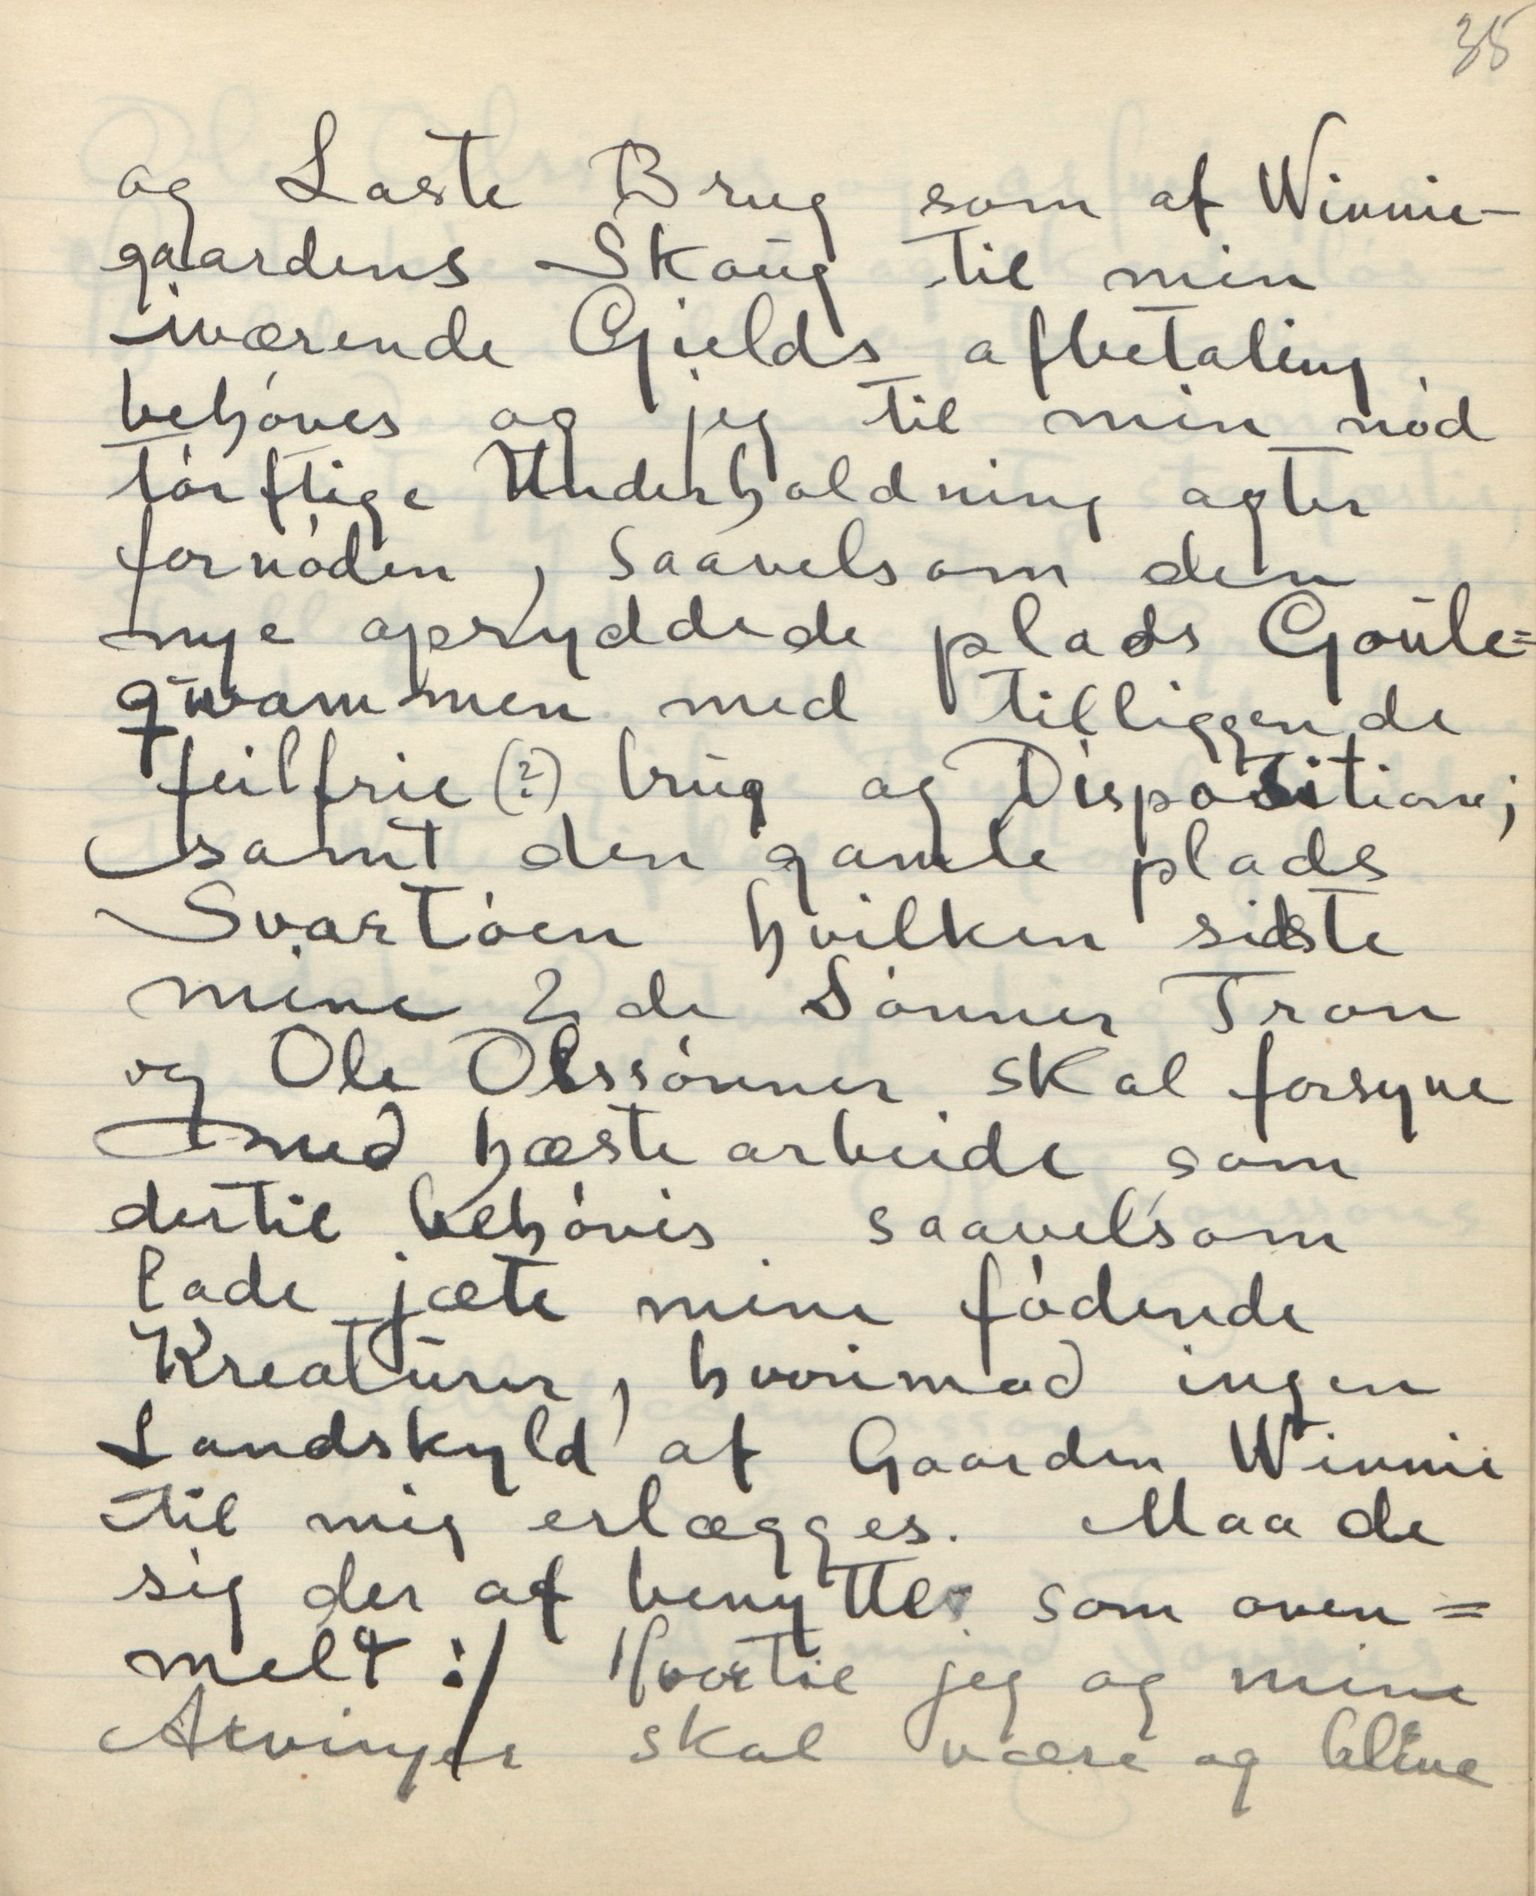 35
og Laste Brug som af Winnie-
gaardens Skoug til min
iværende Gields afbetaling
behóves og jeg til min nód
tórftige Underholdning agter
fornóden, saavelsom den
nye opryddede plads Goule=
qwammen med tilliggende
feilfrie (?) brug og Disposition;
samt den gamle plads
Svartóen hvilken sidste
mine 2de Sónner Tron
og Ole Olssónner skal forsyne
med hæstearbeide som
dertil behóves saavelsom
lade jæte mine fódende
Kreaturer, hvorimod ingen
Landskyld af Gaarden Winnie
til mig erlægges. Maa de
sig der af benytte som oven=
melt :/ Hvortil jeg og mine
Arvinger skal være og blive